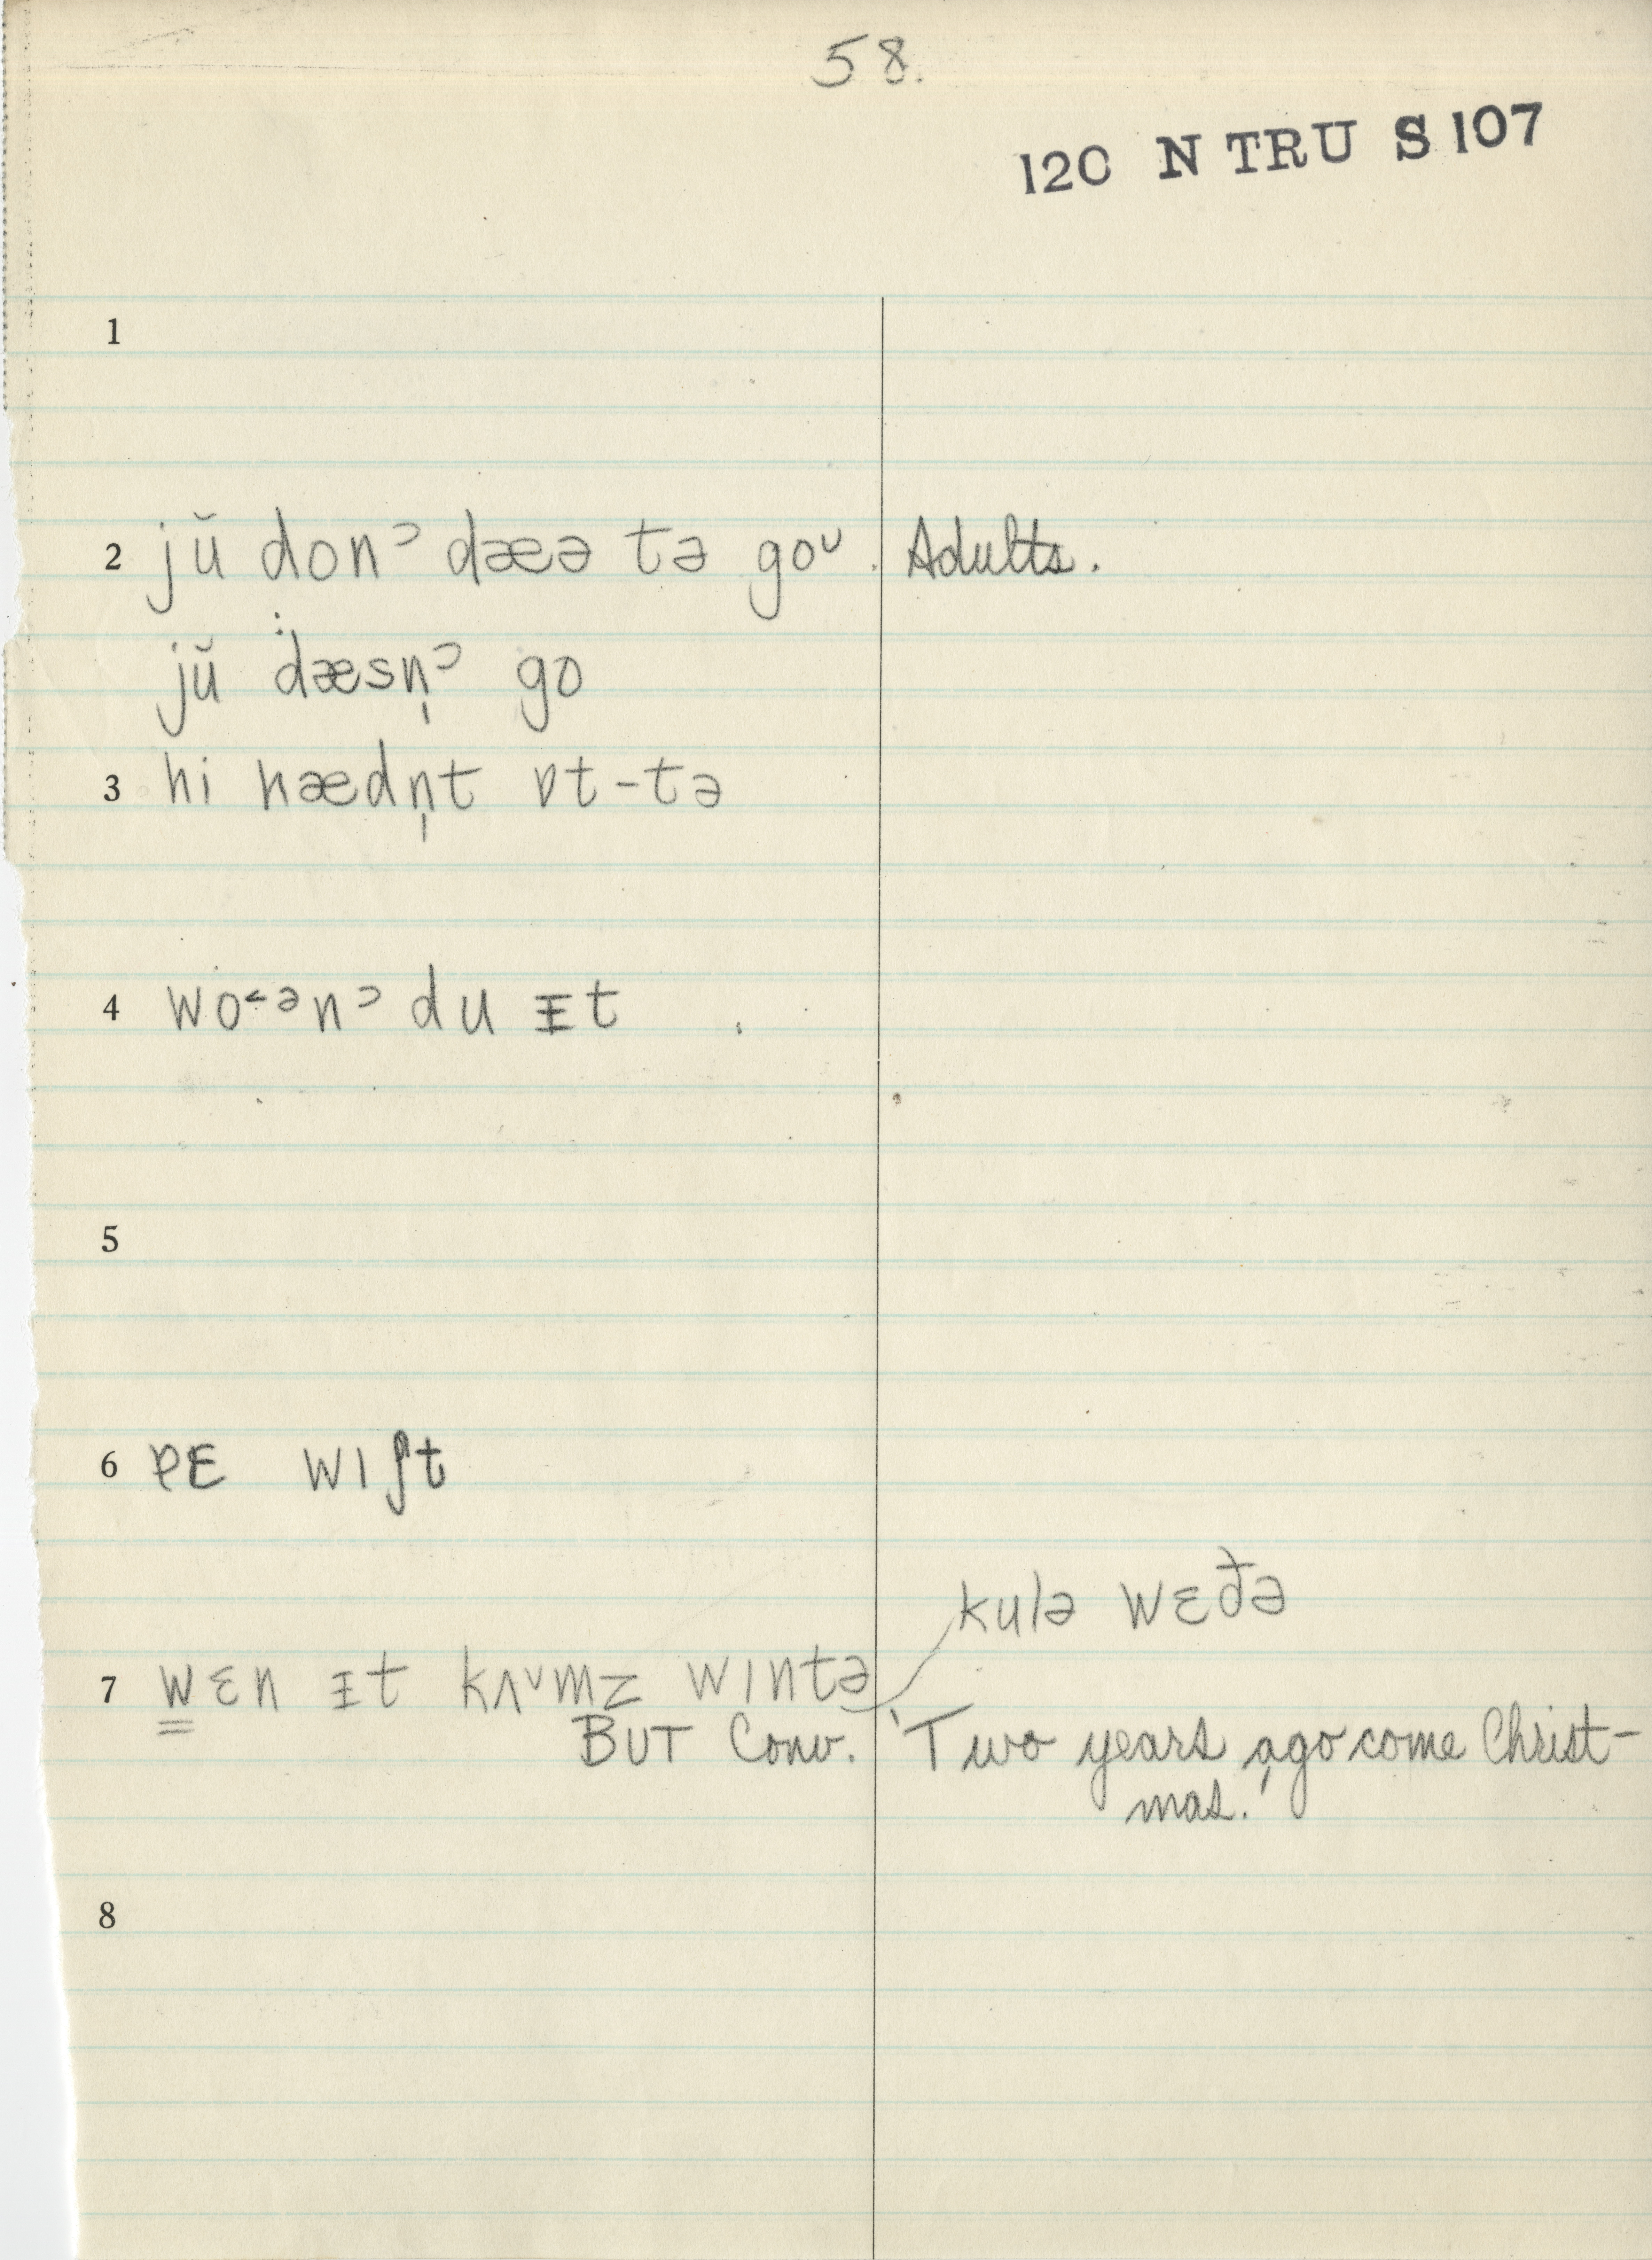 58.
120 N TRU S 107
1
2 jŭ donᵓ dæə tə goᵛ. Adults.
jŭ dæsn̩ᵓ go
3 hi hædn̩t ɒt-tə
4 wo˂ᵊnᵓ du ᵻt
5
6 ɐE wɪʃt
kulə wɛðə
7 wɛn ᵻt kʌᵛmz wɪntə
BUT Conv. 'Two years ago come Christ-
mas.'
8